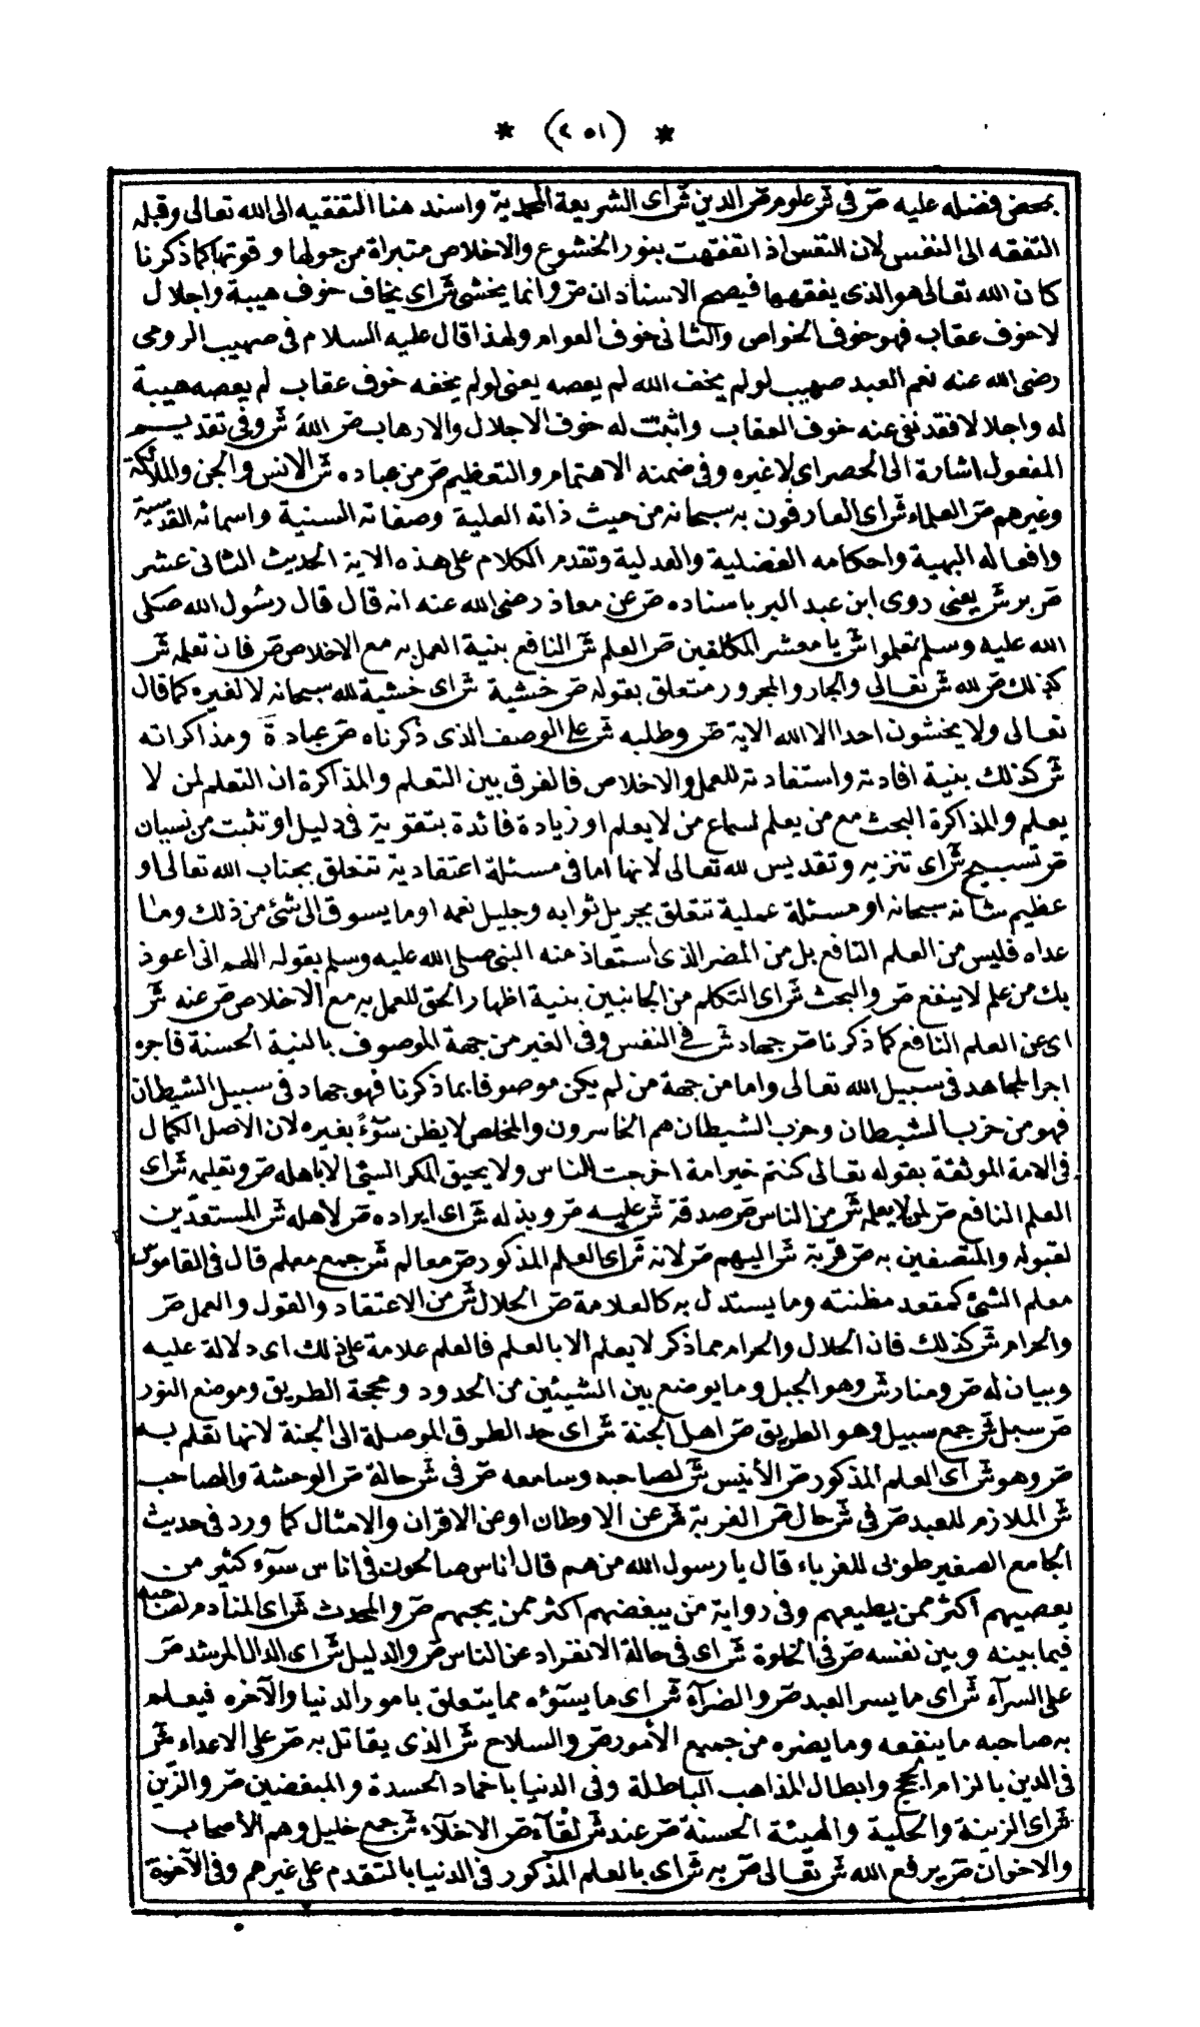 * (٢٥١) *
بمحض فضله عليه صر في شر علوم صر الدين شر اى الشريعة المحمدية واسند هنا التفقيه الى الله تعالى وقبله
التفقه الى النفس لان النفس اذا تفقهت بنور الخشوع والاخلاص متبراة من حولها وقوتها كما ذكرنا
كان الله تعالى هو الذى يفقهها فيصح الاسنادان صر وانما يخشى شر اى يخاف خوف هيبة واجلال
لا خوف عقاب فهو خوف الخواص والثانى خوف العوام ولهذا قال عليه السلام فى صهيب الرومى
رضى الله عنه نعم العبد صهيب لو لم يخف الله لم يعصه يعنى لو لم يخفه خوف عقاب لم يعصه هيبة
له واجلالا فقد نفى عنه خوف العقاب واثبت له خوف الاجلال والارهاب صر الله شر وفى تقديم
المفعول اشارة الى الحصر اى لا غيره وفى ضمنه الاهتمام والتعظيم صر من عباده شر الانس والجن والملائكة
وغيرهم صر العلماء شر اى العارفون به سبحانه من حيث ذاته العلية وصفاته السنية واسمائه القدسية
وافعاله البهية واحكامه الفضلية والعدلية وتقدم الكلام على هذه الاية الحديث الثانى عشر
صر بر شر يعنى روى ابن عبد البر باسناده صر عن معاذ رضى الله عنه انه قال قال رسول الله صلى
الله عليه وسلم تعلموا شر يا معشر المكلفين صر العلم شر النافع بنية العمل به مع الاخلاص صر فان تعلمه شر
كذلك صر لله شر تعالى والجار والمجرور متعلق بقوله صر خشية شر اى خشية لله سبحانه لا لغيره كما قال
تعالى ولا يخشون احدا الا الله الاية صر وطلبه شر على الوصف الذى ذكرناه صر عبادة ومذاكراته
شر كذلك بنية افادته واستفادته للعمل والاخلاص فالفرق بين التعلم والمذاكرة ان التعلم لمن لا
يعلم والمذاكرة البحث مع من يعلم لسماع من لا يعلم او زيادة فائدة بتقوية فى دليل او تثبت من نسيان
صر تسبيح شر اى تنزيه وتقديس لله تعالى لانها اما فى مسئلة اعتقادية تتعلق بجناب الله تعالى او
عظيم شانه سبحانه او مسئلة عملية تتعلق بجزيل ثوابه وجليل نعمه او ما يسوق الى شئ من ذلك وما
عداه فليس من العلم النافع بل من المضر الذى استعاذ منه النبى صلى الله عليه وسلم بقوله اللهم انى اعوذ
بك من علم لا ينفع صر والبحث شر اى التكلم من الجانبين بنية اظهار الحق للعمل به مع الاخلاص صر عنه شر
اى عن العلم النافع كما ذكرنا صر جهاد شر فى النفس وفى الغير من جهة الموصوف بالنية الحسنة فاجره
اجر المجاهد فى سبيل الله تعالى واما من جهة من لم يكن موصوفا بما ذكرنا فهو جهاد فى سبيل الشيطان
فهو من حزب الشيطان وحزب الشيطان هم الخاسرون والمخلص لا يظن سوءً بغيره لان الاصل الكمال
فى الامة الموثقة بقوله تعالى كنتم خير امة اخرجت للناس ولا يحيق المكر السيئ الا باهله صر وتعليمه شر اى
العلم النافع صر لمن لا يعلمه شر من الناس صر صدقة شر عليه صر وبذله شر اى ايراده صر لاهله شر المستعدين
لقبوله والمتصفين به صر قربة شر اليهم صر لانه شر اى العلم المذكور صر معالم شر جمع معلم قال فى القاموس
معلم الشئ كمقعد مظنته وما يستدل به كالعلامة صر الحلال شر من الاعتقاد والقول والعمل صر
والحرام شر كذلك فان الحلال والحرام مما ذكر لا يعلم الا بالعلم فالعلم علامة على ذلك اى دلالة عليه
وبيان له صر ومنار شر وهو الجبل وما يوضع بين الشيئين من الحدود ومحجة الطريق وموضع النور
صر سبل شر جمع سبيل وهو الطريق صر اهل الجنة شر اى حد الطرق الموصلة الى الجنة لانها تعلم به
صر وهو شر اى العلم المذكور صر الأنيس شر لصاحبه وسامعه صر فى شر حالة صر الوحشة والصاحب
شر الملازم للعبد صر فى شر حال صر الغربة شر عن الاوطان او عن الاقران والامثال كما ورد فى حديث
الجامع الصغير طوبى للغرباء قال يا رسول الله من هم قال اناس صالحون فى اناس سوء كثير من
يعصيهم اكثر ممن يطيعهم وفى رواية من يبغضهم اكثر ممن يحبهم صر والمحدث شر اى المنادم لصاحبه
فيما بينه وبين نفسه صر فى الخلوة شر اى فى حالة الانفراد عن الناس صر والدليل شر اى الدال المرشد صر
على السرآء شر اى ما يسر العبد صر والضرآء شر اى ما يسوءه مما يتعلق بامور الدنيا والآخره فيعلم
به صاحبه ما ينفعه وما يضره من جميع الأمور صر والسلاح شر الذى يقاتل به صر على الاعداء شر
فى الدين بالزام الحجج وابطال المذاهب الباطلة وفى الدنيا باخماد الحسدة والمبغضين صر والزين
شر اى الزينة والحلية والهيئة الحسنة صر عند شر لقآء صر الاخلآء شر جمع خليل وهم الأصحاب
والاخوان صر يرفع الله شر تعالى صر به شر اى بالعلم المذكور فى الدنيا بالتقدم على غيرهم وفى الآخرة